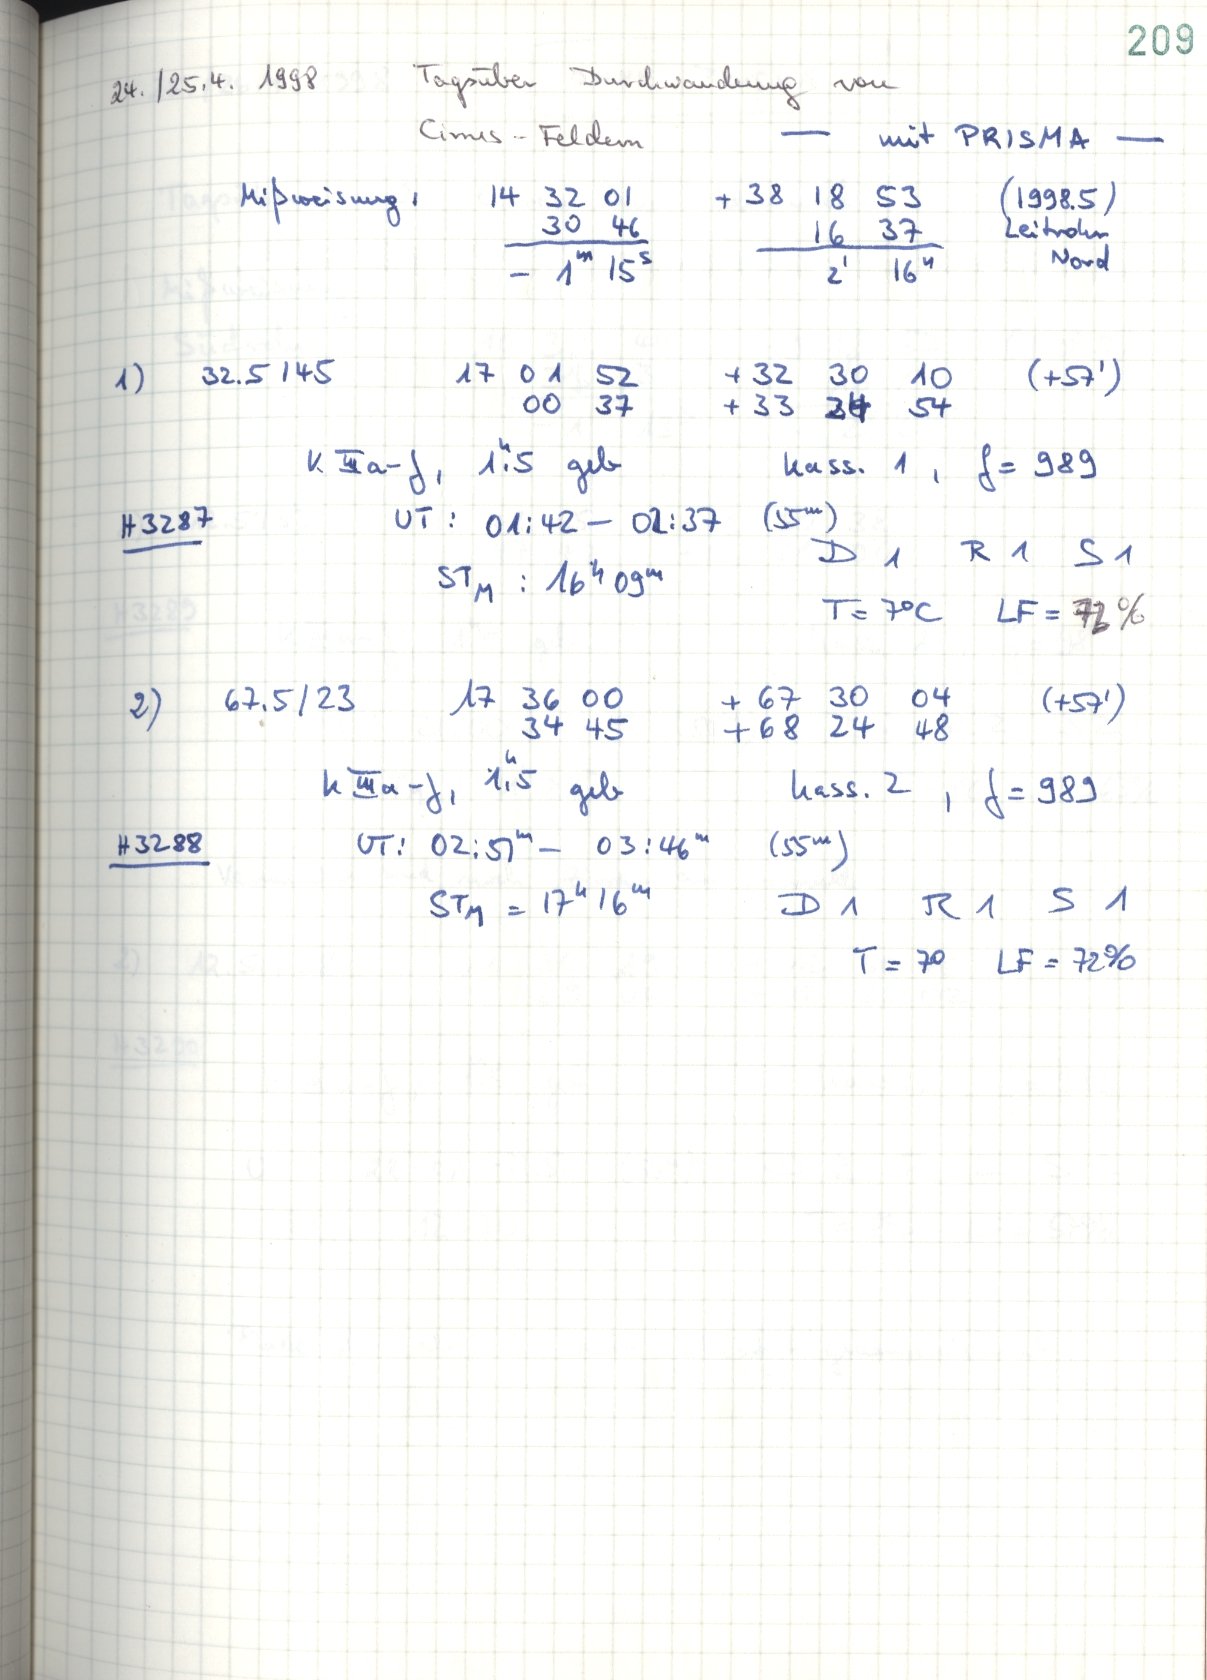 209
24./25.4. 1998 Tagsüber Durchwanderung von
Cirrus-Feldern — mit PRISMA —
Mißweisung: 14 32 01 +38 18 53 (1998.5)
30 46 16 37 Leitrohr
- 1m 15s 2' 16" Nord
1) 32.5/145 17 01 52 +32 30 10 (+57')
00 37 +33 24 54
K IIIa-J, 1h.5 geb Kass. 1, f = 989
H3287 UT: 01:42 – 02:37 (55m)
D 1 R 1 S 1
STM: 16h 09m
T = 7°C LF = %
2) 67.5/23 17 36 00 +67 30 04 (+57')
34 45 +68 24 48
K IIIa-J, 1h.5 geb Kass. 2, f = 989
H3288 UT: 02:51m – 03:46m (55m)
STM = 17h 16m D 1 R 1 S 1
T = 7° LF = 72%